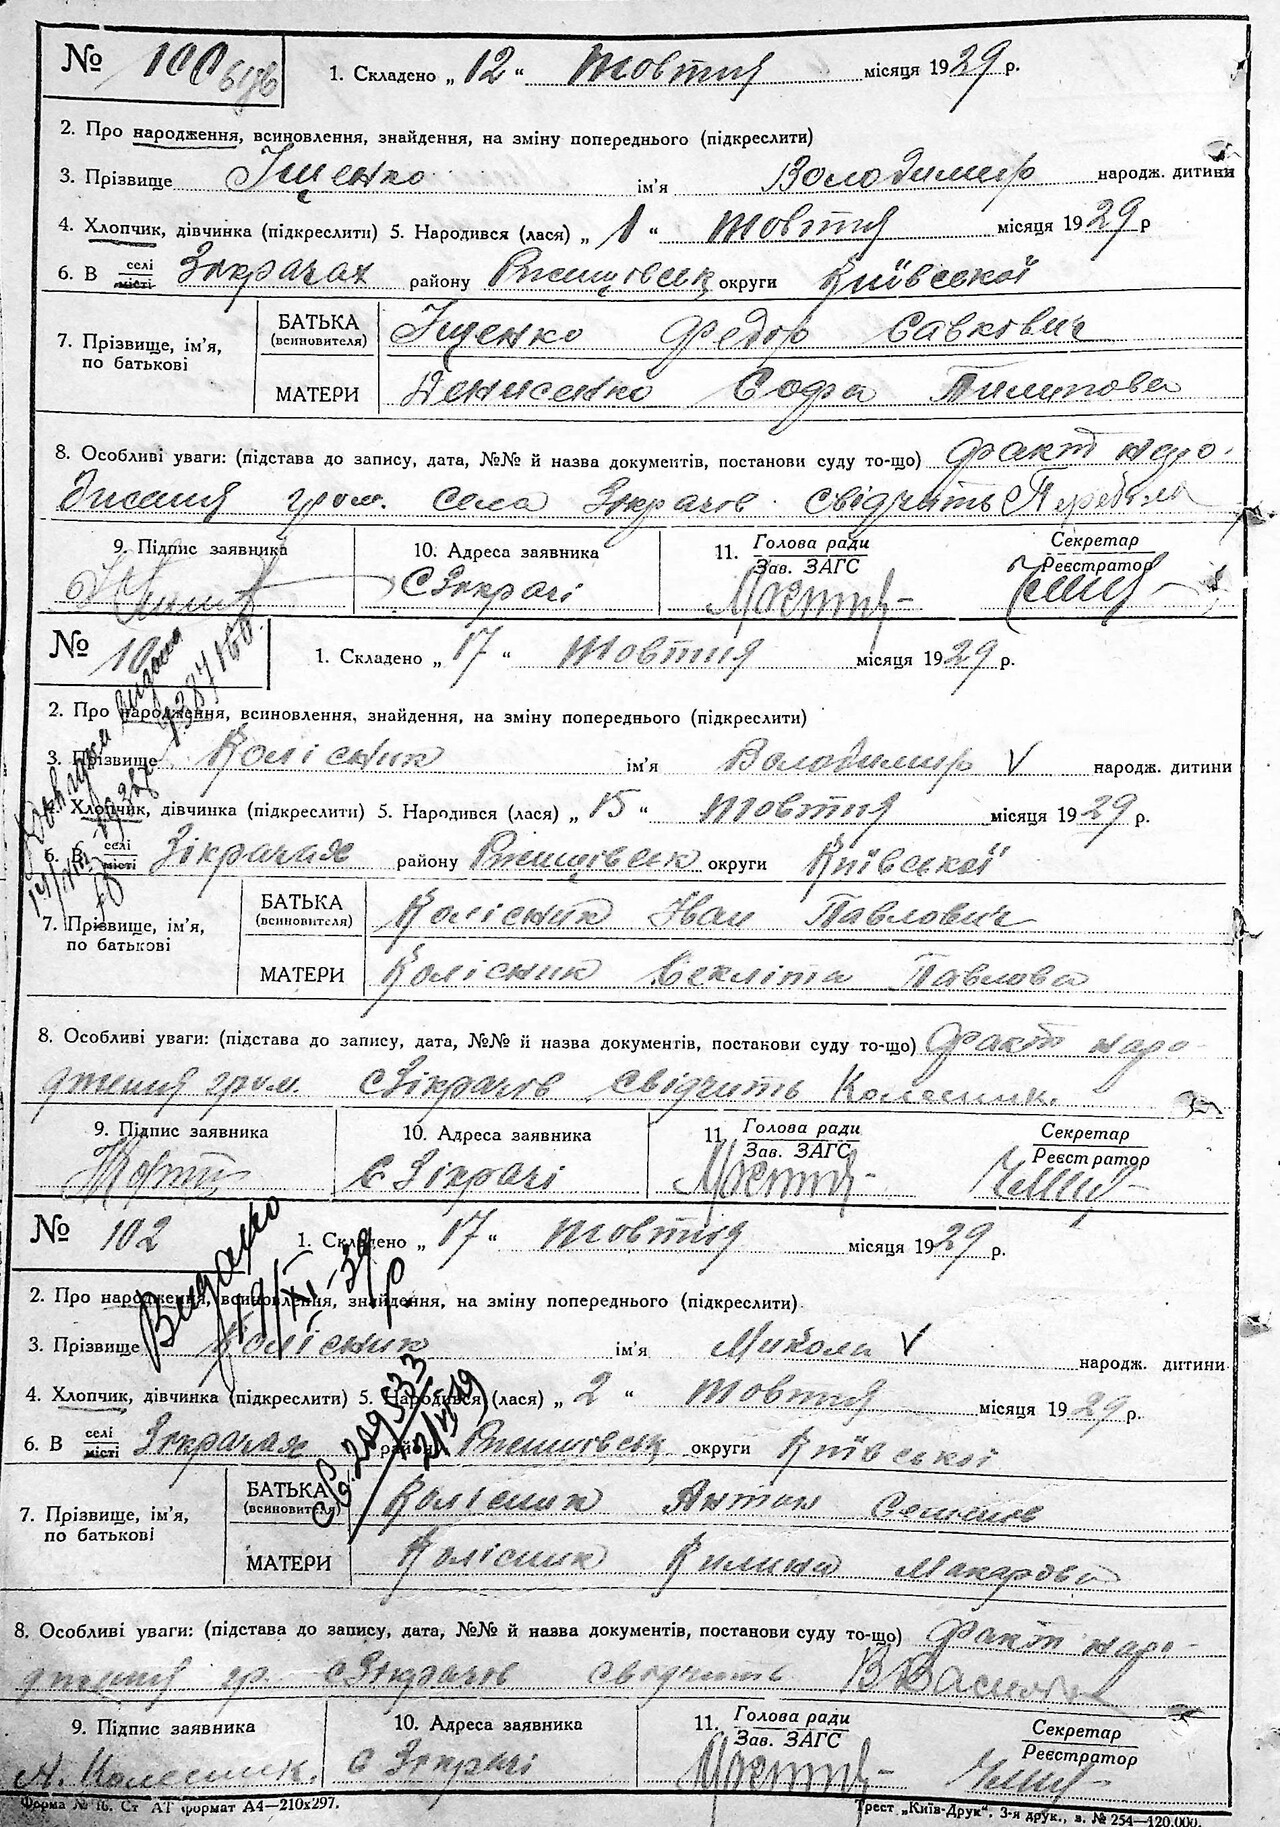 № 100 1. Складено „ 12 “ жовтня місяця 1929 р.
2. Про народження, всиновлення, знайдення, на зміну попереднього (підкреслити)
3. Прізвище Іщенко ім'я Володимир народж. дитини
4. Хлопчик, дівчинка (підкреслити) 5. Народився (лася) „ 1 “ жовтня місяця 1929 р
6. В селі місті Зікрачах району Ржищівськ округи Київської
7. Прізвище, ім'я, по батькові
БАТЬКА (всиновителя) Іщенко Федор Савкович
МАТЕРИ Денисенко Софа Пилипова
8. Особливі уваги: (підстава до запису, дата, №№ й назва документів, постанови суду то-що) факт наро-
дження гром. села Зікрачов свідчить
9. Підпис заявника 10. Адреса заявника 11. Голова ради Зав. ЗАГС Секретар Реєстратор
с Зікрачі
№ 1. Складено „ 17 “ жовтня місяця 1929 р.
2. Про народження, всиновлення, знайдення, на зміну попереднього (підкреслити)
3. Прізвище Колісник ім'я Володимир V народж. дитини
Хлопчик, дівчинка (підкреслити) 5. Народився (лася) „ 15 “ жовтня місяця 1929 р.
6. В селі місті Зікрачах району Ржищівськ округи Київської
7. Прізвище, ім'я, по батькові
БАТЬКА (всиновителя) Колісник Іван Павлович
МАТЕРИ Колісник Секліта Павлова
8. Особливі уваги: (підстава до запису, дата, №№ й назва документів, постанови суду то-що) Факт наро-
дження гром. с Зікрачов свідчить Колесник.
9. Підпис заявника 10. Адреса заявника 11. Голова ради Зав. ЗАГС Секретар Реєстратор
с Зікрачі
№ 102 1. Складено „ 17 “ жовтня місяця 1929 р.
Видано 19/XI-39 р
2. Про народження, всиновлення, знайдення, на зміну попереднього (підкреслити).
3. Прізвище Колісник ім'я Микола V народж. дитини
4. Хлопчик, дівчинка (підкреслити) 5. Народився (лася) „ 2 “ жовтня місяця 1929 р.
6. В селі місті Зікрачах району Ржищівськ округи Київської
7. Прізвище, ім'я, по батькові
БАТЬКА (всиновителя) Колісник Антон Семенов
МАТЕРИ Колісник Килина Макарова
8. Особливі уваги: (підстава до запису, дата, №№ й назва документів, постанови суду то-що) Факт наро-
дження гр. с Зікрачов свідчить
9. Підпис заявника 10. Адреса заявника 11. Голова ради Зав. ЗАГС Секретар Реєстратор
А. Колесник. с Зікрачі
Форма № 16. Ст АТ формат А4—210x297. Трест „Київ-Друк“. 3-я друк., в. № 254—120.000.